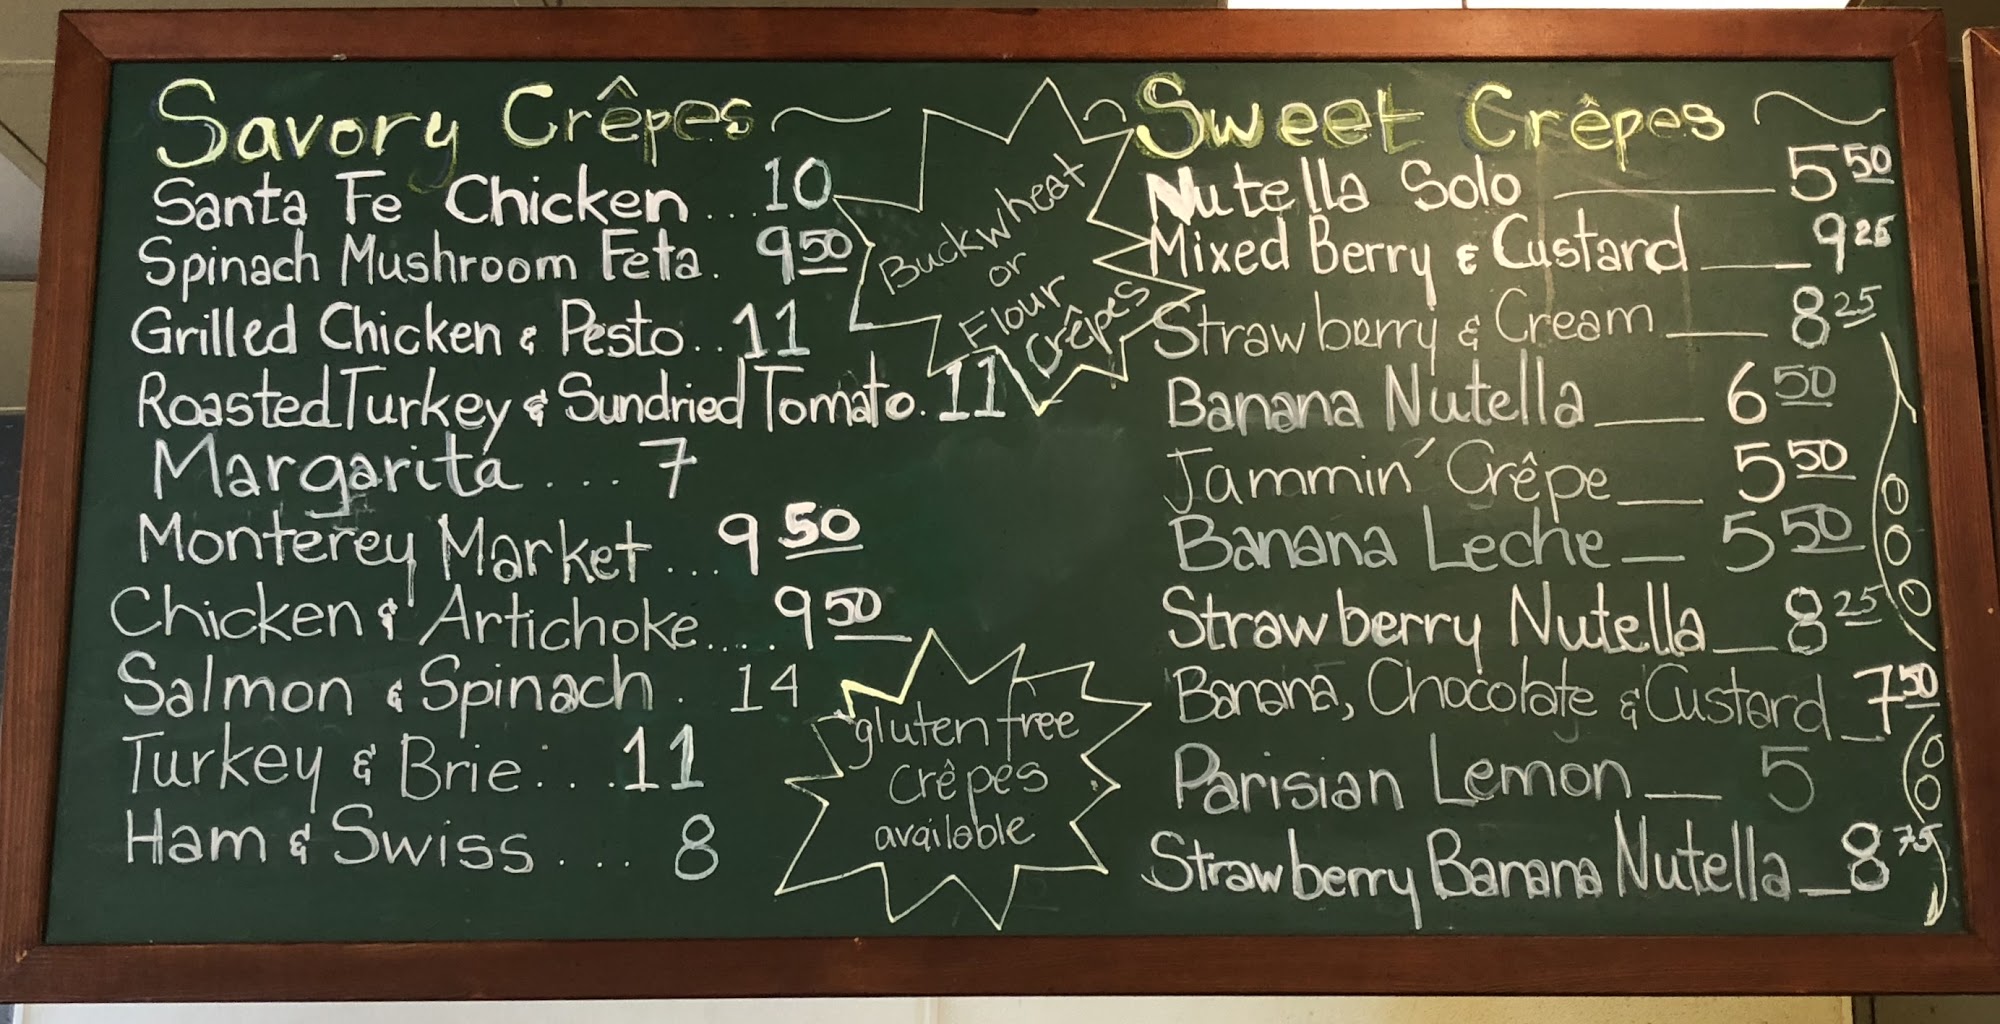 Savory Crêpes
Santa Fe Chicken...10
Spinach Mushroom Feta. 9 50
Grilled Chicken & Pesto..11
Roasted Turkey & Sundried Tomato. 11
Margarita...7
Monterey Market...9 50
Chicken & Artichoke.....9 50
Salmon & Spinach. 14
Turkey & Brie...11
Ham & Swiss...8
Buckwheat
or
Flour
Crêpes
gluten free
crêpes
available
Sweet Crêpes
Nutella Solo 5 50
Mixed Berry & Custard 9 25
Strawberry & Cream 8 25
Banana Nutella 6 50
Jammin' Crêpe 5 50
Banana Leche 5 50
Strawberry Nutella 8 25
Banana, Chocolate & Custard 7 50
Parisian Lemon 5
Strawberry Banana Nutella 8 75